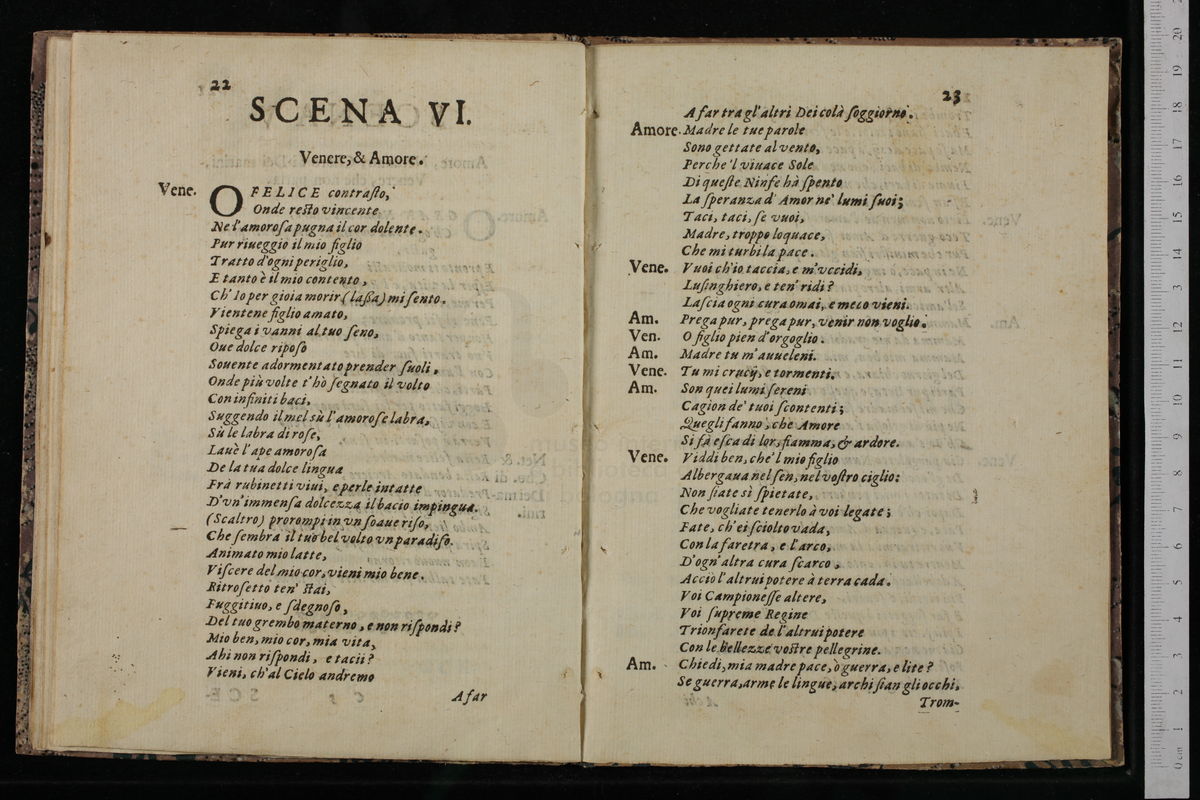 22
SCENA VI.
Venere, & Amore.
Vene. O FELICE contraſto,
Onde reſto vincente
Ne l'amoroſa pugna il cor dolente.
Pur riueggio il mio figlio
Tratto d'ogni periglio,
E tanto è il mio contento,
Ch'Io per gioia morir (laſſa) mi ſento.
Vientene figlio amato,
Spiega i vanni al tuo ſeno,
Oue dolce ripoſo
Souente adormentato prender ſuoli,
Onde più volte t'hò ſegnato il volto
Con infiniti baci,
Suggendo il mel sù l'amoroſe labra,
Sù le labra di roſe,
Lauè l'ape amoroſa
De la tua dolce lingua
Frà rubinetti viui, e perle intatte
D'vn'immenſa dolcezza il bacio impingua.
(Scaltro) prorompi in vn ſoaue riſo,
Che ſembra il tuo bel volto vn paradiſo.
Animato mio latte,
Viſcere del mio cor, vieni mio bene.
Ritroſetto ten' ſtai,
Fuggitiuo, e ſdegnoſo,
Del tuo grembo materno, e non riſpondi?
Mio ben, mio cor, mia vita,
Ahi non riſpondi, e tacii?
Vieni, ch'al Cielo andremo
A far
23
A far tra gl'altri Dei colà ſoggiorno.
Amore. Madre le tue parole
Sono gettate al vento,
Perche 'l viuace Sole
Di queſte Ninfe hà ſpento
La ſperanza d'Amor ne' lumi ſuoi;
Taci, taci, ſe vuoi,
Madre, troppo loquace,
Che mi turbi la pace.
Vene. Vuoi ch'io taccia, e m'vccidi,
Luſinghiero, e ten' ridi?
Laſcia ogni cura omai, e meco vieni.
Am. Prega pur, prega pur, venir non voglio.
Ven. O figlio pien d'orgoglio.
Am. Madre tu m'auueleni.
Vene. Tu mi crucij, e tormenti.
Am. Son quei lumi ſereni
Cagion de' tuoi ſcontenti;
Quegli fanno, che Amore
Si fà eſca di lor, fiamma, & ardore.
Vene. Viddi ben, che'l mio figlio
Albergaua nel ſen, nel voſtro ciglio:
Non ſiate sì ſpietate,
Che vogliate tenerlo à voi legate;
Fate, ch'ei ſciolto vada,
Con la faretra, e l'arco,
D'ogn'altra cura ſcarco,
Acciò l'altrui potere à terra cada.
Voi Campioneſſe altere,
Voi ſupreme Regine
Trionfarete de l'altrui potere
Con le bellezze voſtre pellegrine.
Am. Chiedi, mia madre pace, ò guerra, e lite?
Se guerra, arme le lingue, archi ſian gli occhi,
Trom-